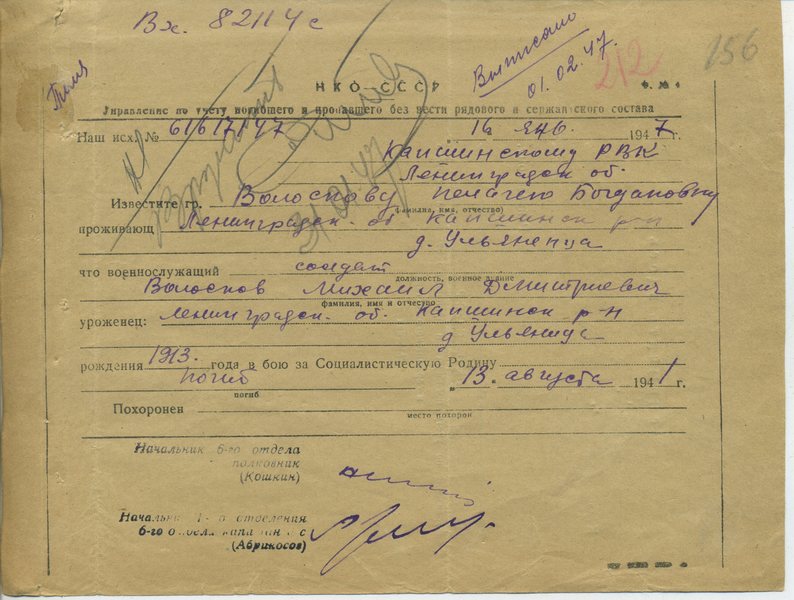 Вх. 82114с
Выписано
01.02.47.
212
156
НКО СССР
Ф. № 4
Управление по учету погибшего и пропавшего без вести рядового и сержантского состава
Наш исх. № 61617147 16 янв. 1947 г.
Капшинскому РВК
Ленинградск об.
Известите гр. Волоскову Пелагею Богдановну
(фамилия, имя, отчество)
проживающ Ленинградск. об Капшинск р-н
д. Ульяница
что военнослужащий солдат
должность, военное звание
Волосков Михаил Дмитриевич
фамилия, имя и отчество
уроженец: Ленинградск. об. Капшинск р-н
д Ульяница
рождения 1913. года в бою за Социалистическую Родину
погиб „13. августа 1941 г.
погиб
Похоронен
место похорон
Начальник 6-го отдела
полковник
(Кошкин)
Начальник 1-го отделения
6-го отдела капитан а/с
(Абрикосов)